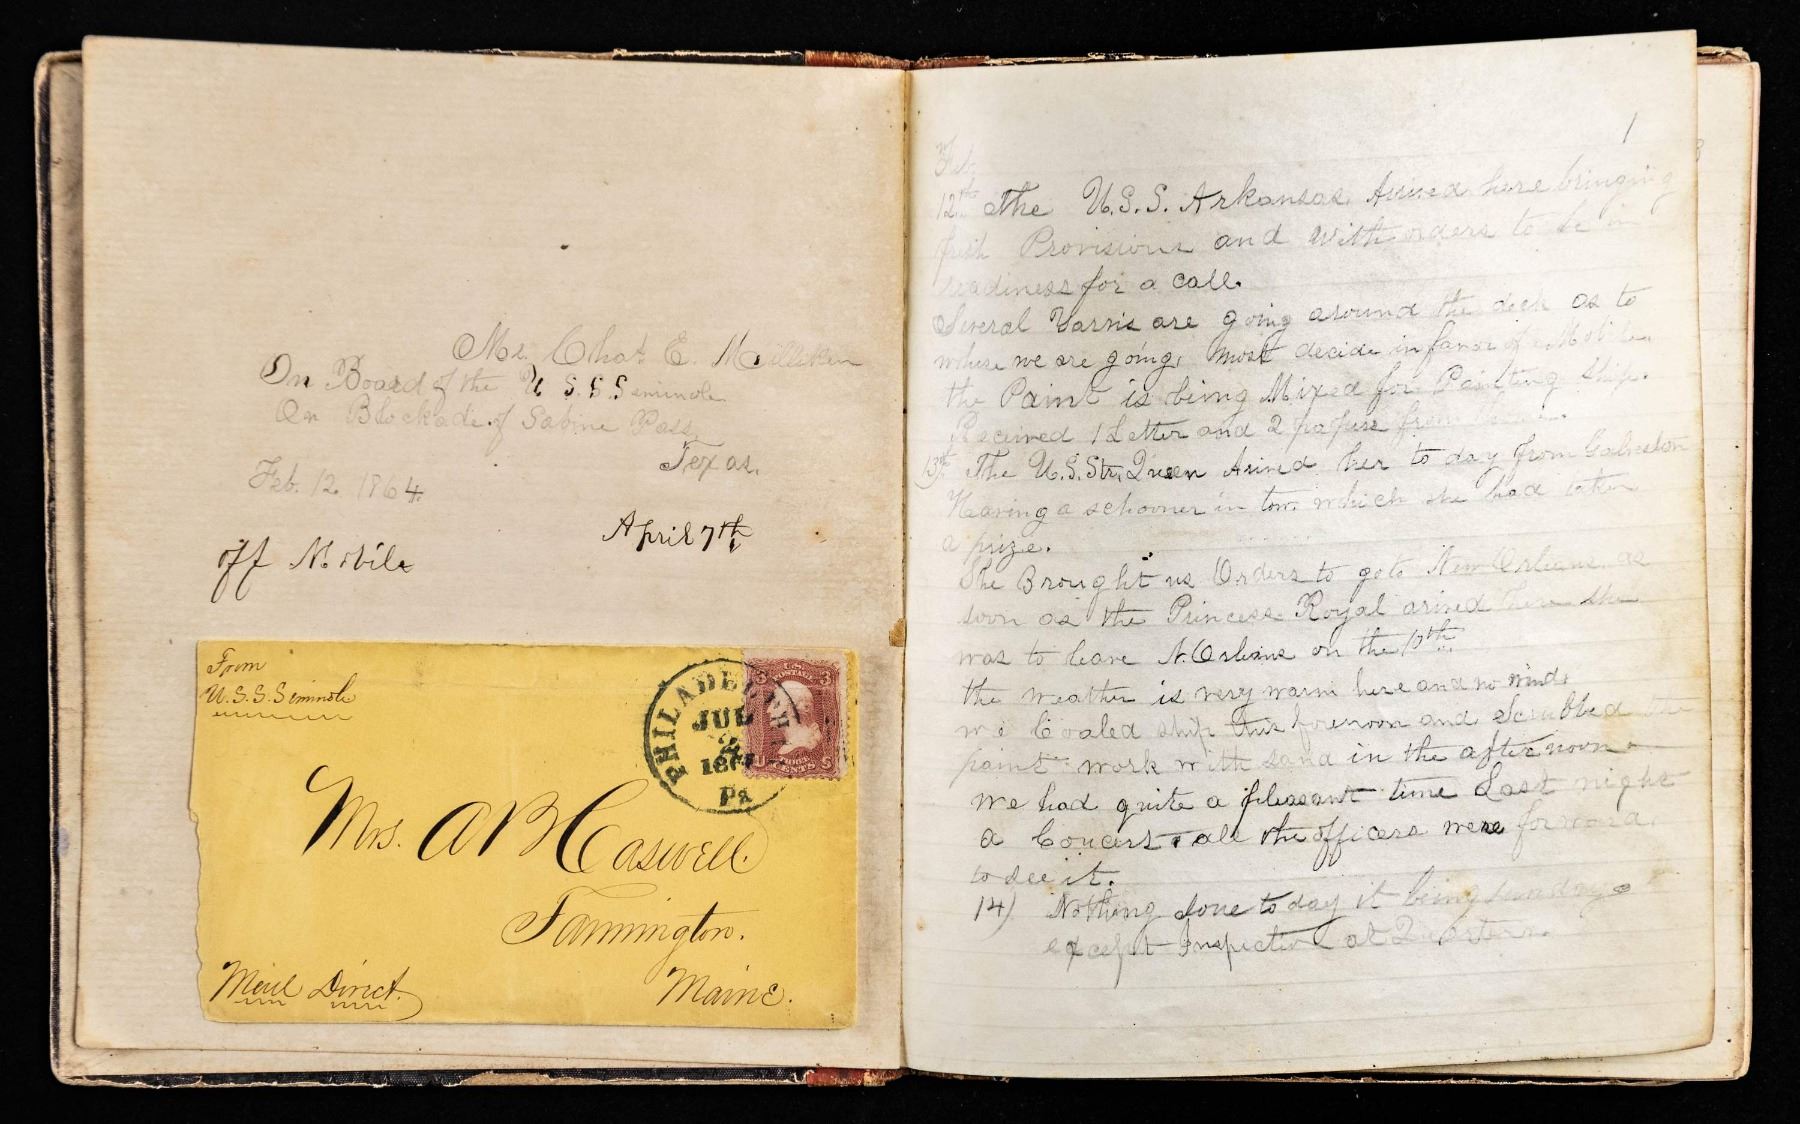 Mr. Chas. E. Milliken
On Board of the U.S.S. Seminole
On Blockade of Sabine Pass,
Texas.
Feb. 12 1864.
April 7th
off Mobile
From
U.S.S. Seminole
PHILADELPHIA
JUL
2
Pa
U.S. POSTAGE
3 3
THREE
U CENTS S
Mrs. A B Caswell.
Farmington.
Maine.
Mail Direct.
1
Feb.
12th The U.S.S. Arkansas Arived here bringing
fresh Provisions and with orders to be in
readiness for a call.
Several Yarns are going around the deck as to
where we are going, most decide in favor of Mobile
the Paint is being Mixed for Painting ship.
Received 1 Letter and 2 papers from
13th The U.S. Str. Queen Arived her to day from Galveston
Having a schooner in tow which she had taken
a prize.
She Brought us Orders to go to New Orleans as
soon as the Princess Royal arived here she
was to leave N. Orleans on the 10th
the weather is very warm here and no wind,
we Coaled ship this forenoon and Scrubbed the
paint work with sand in the afternoon
we had quite a pleasant time Last night
a Concert all the officers were forward
to see it.
14) Nothing done to day it being sunday
except Inspection at Quarters.